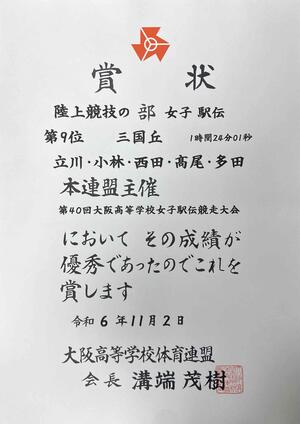 賞 状
陸上競技の 部 女子 駅伝
第9位 三国丘 1時間24分01秒
立川・小林・西田・髙尾・多田
本連盟主催
第40回大阪高等学校女子駅伝競走大会
において その成績が
優秀であったのでこれを
賞します
令和 6 年 11 月 2 日
大阪高等学校体育連盟
会長 溝端 茂樹